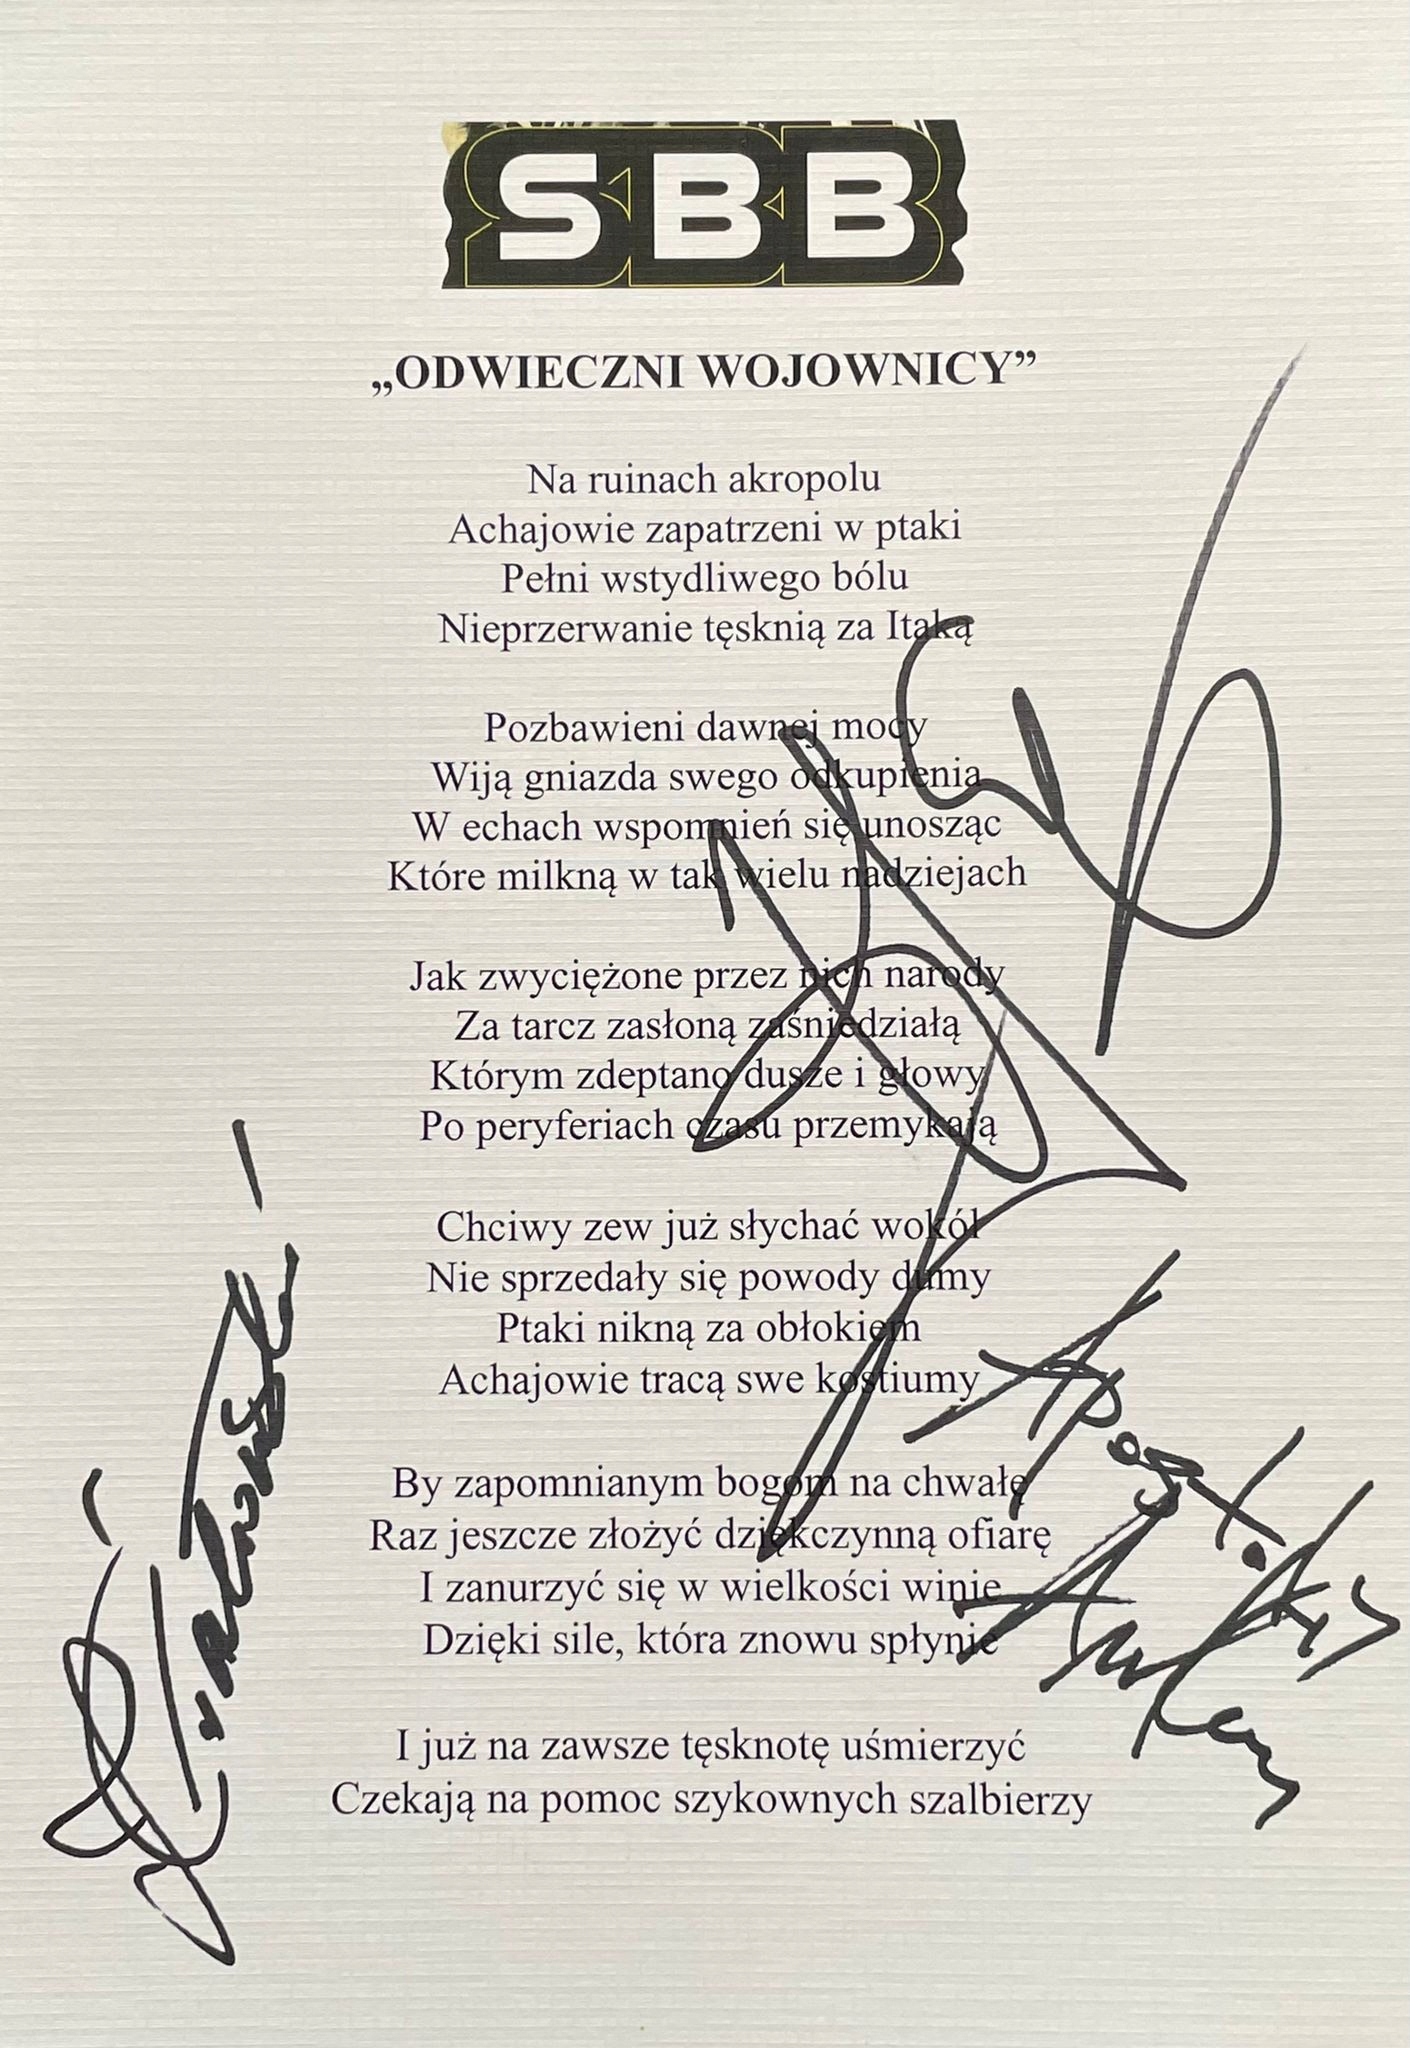 SBB
„ODWIECZNI WOJOWNICY”
Na ruinach akropolu
Achajowie zapatrzeni w ptaki
Pełni wstydliwego bólu
Nieprzerwanie tęsknią za Itaką
Pozbawieni dawnej mocy
Wiją gniazda swego odkupienia
W echach wspomnień się unosząc
Które milkną w tak wielu nadziejach
Jak zwyciężone przez nich narody
Za tarcz zasłoną zaśniedziałą
Którym zdeptano dusze i głowy
Po peryferiach czasu przemykają
Chciwy zew już słychać wokół
Nie sprzedały się powody dumy
Ptaki nikną za obłokiem
Achajowie tracą swe kostiumy
By zapomnianym bogom na chwałę
Raz jeszcze złożyć dziękczynną ofiarę
I zanurzyć się w wielkości winie
Dzięki sile, która znowu spłynie
I już na zawsze tęsknotę uśmierzyć
Czekają na pomoc szykownych szalbierzy